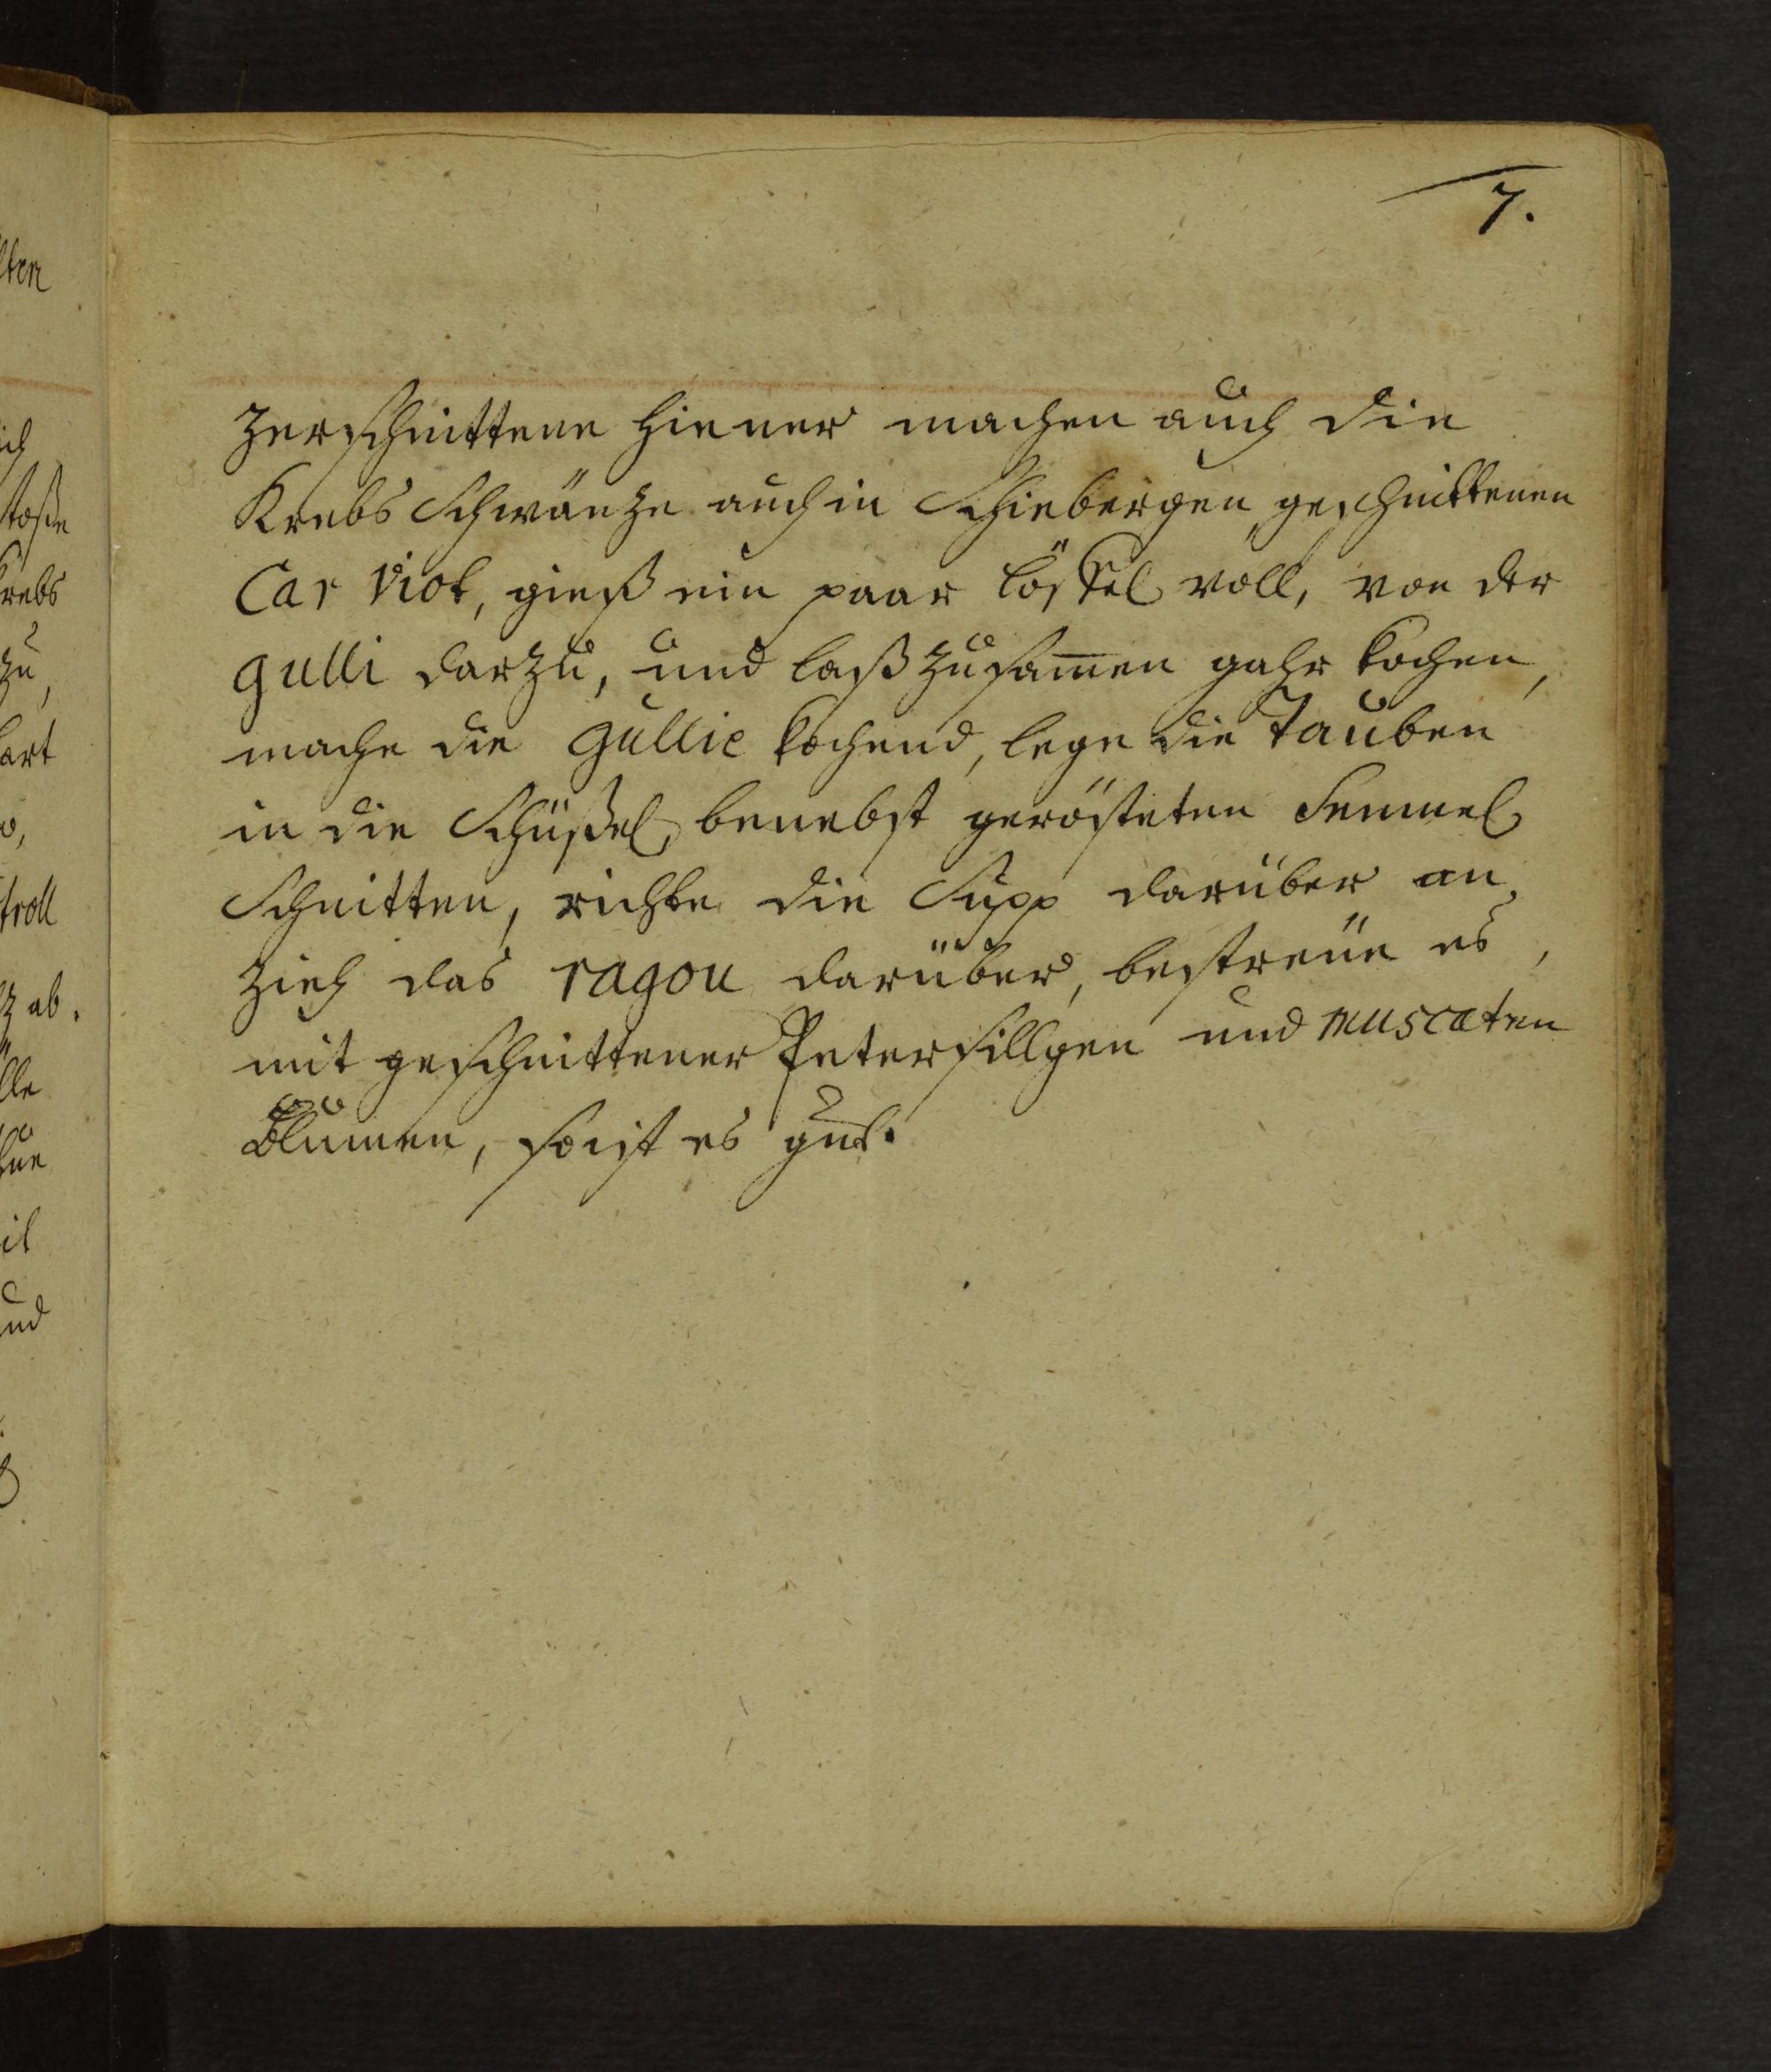 7.
zerschnittene hiener machen auch die
Krebs Schwänze auch in Schiebergen geschnittenen
Car viol, gieß ein paar löffel voll, von der
gulli darzu, und laß zusam̅en gahr kochen,
mache die gullie kochend, lege die Tauben
in die Schüßel, benebst gerösteten Semmel
Schnitten, richte die Supp darüber an,
zieh das ragou darüber, bestreüe es,
mit geschnittener Petersillgen und muscaten
Blumen, so ist es gut.